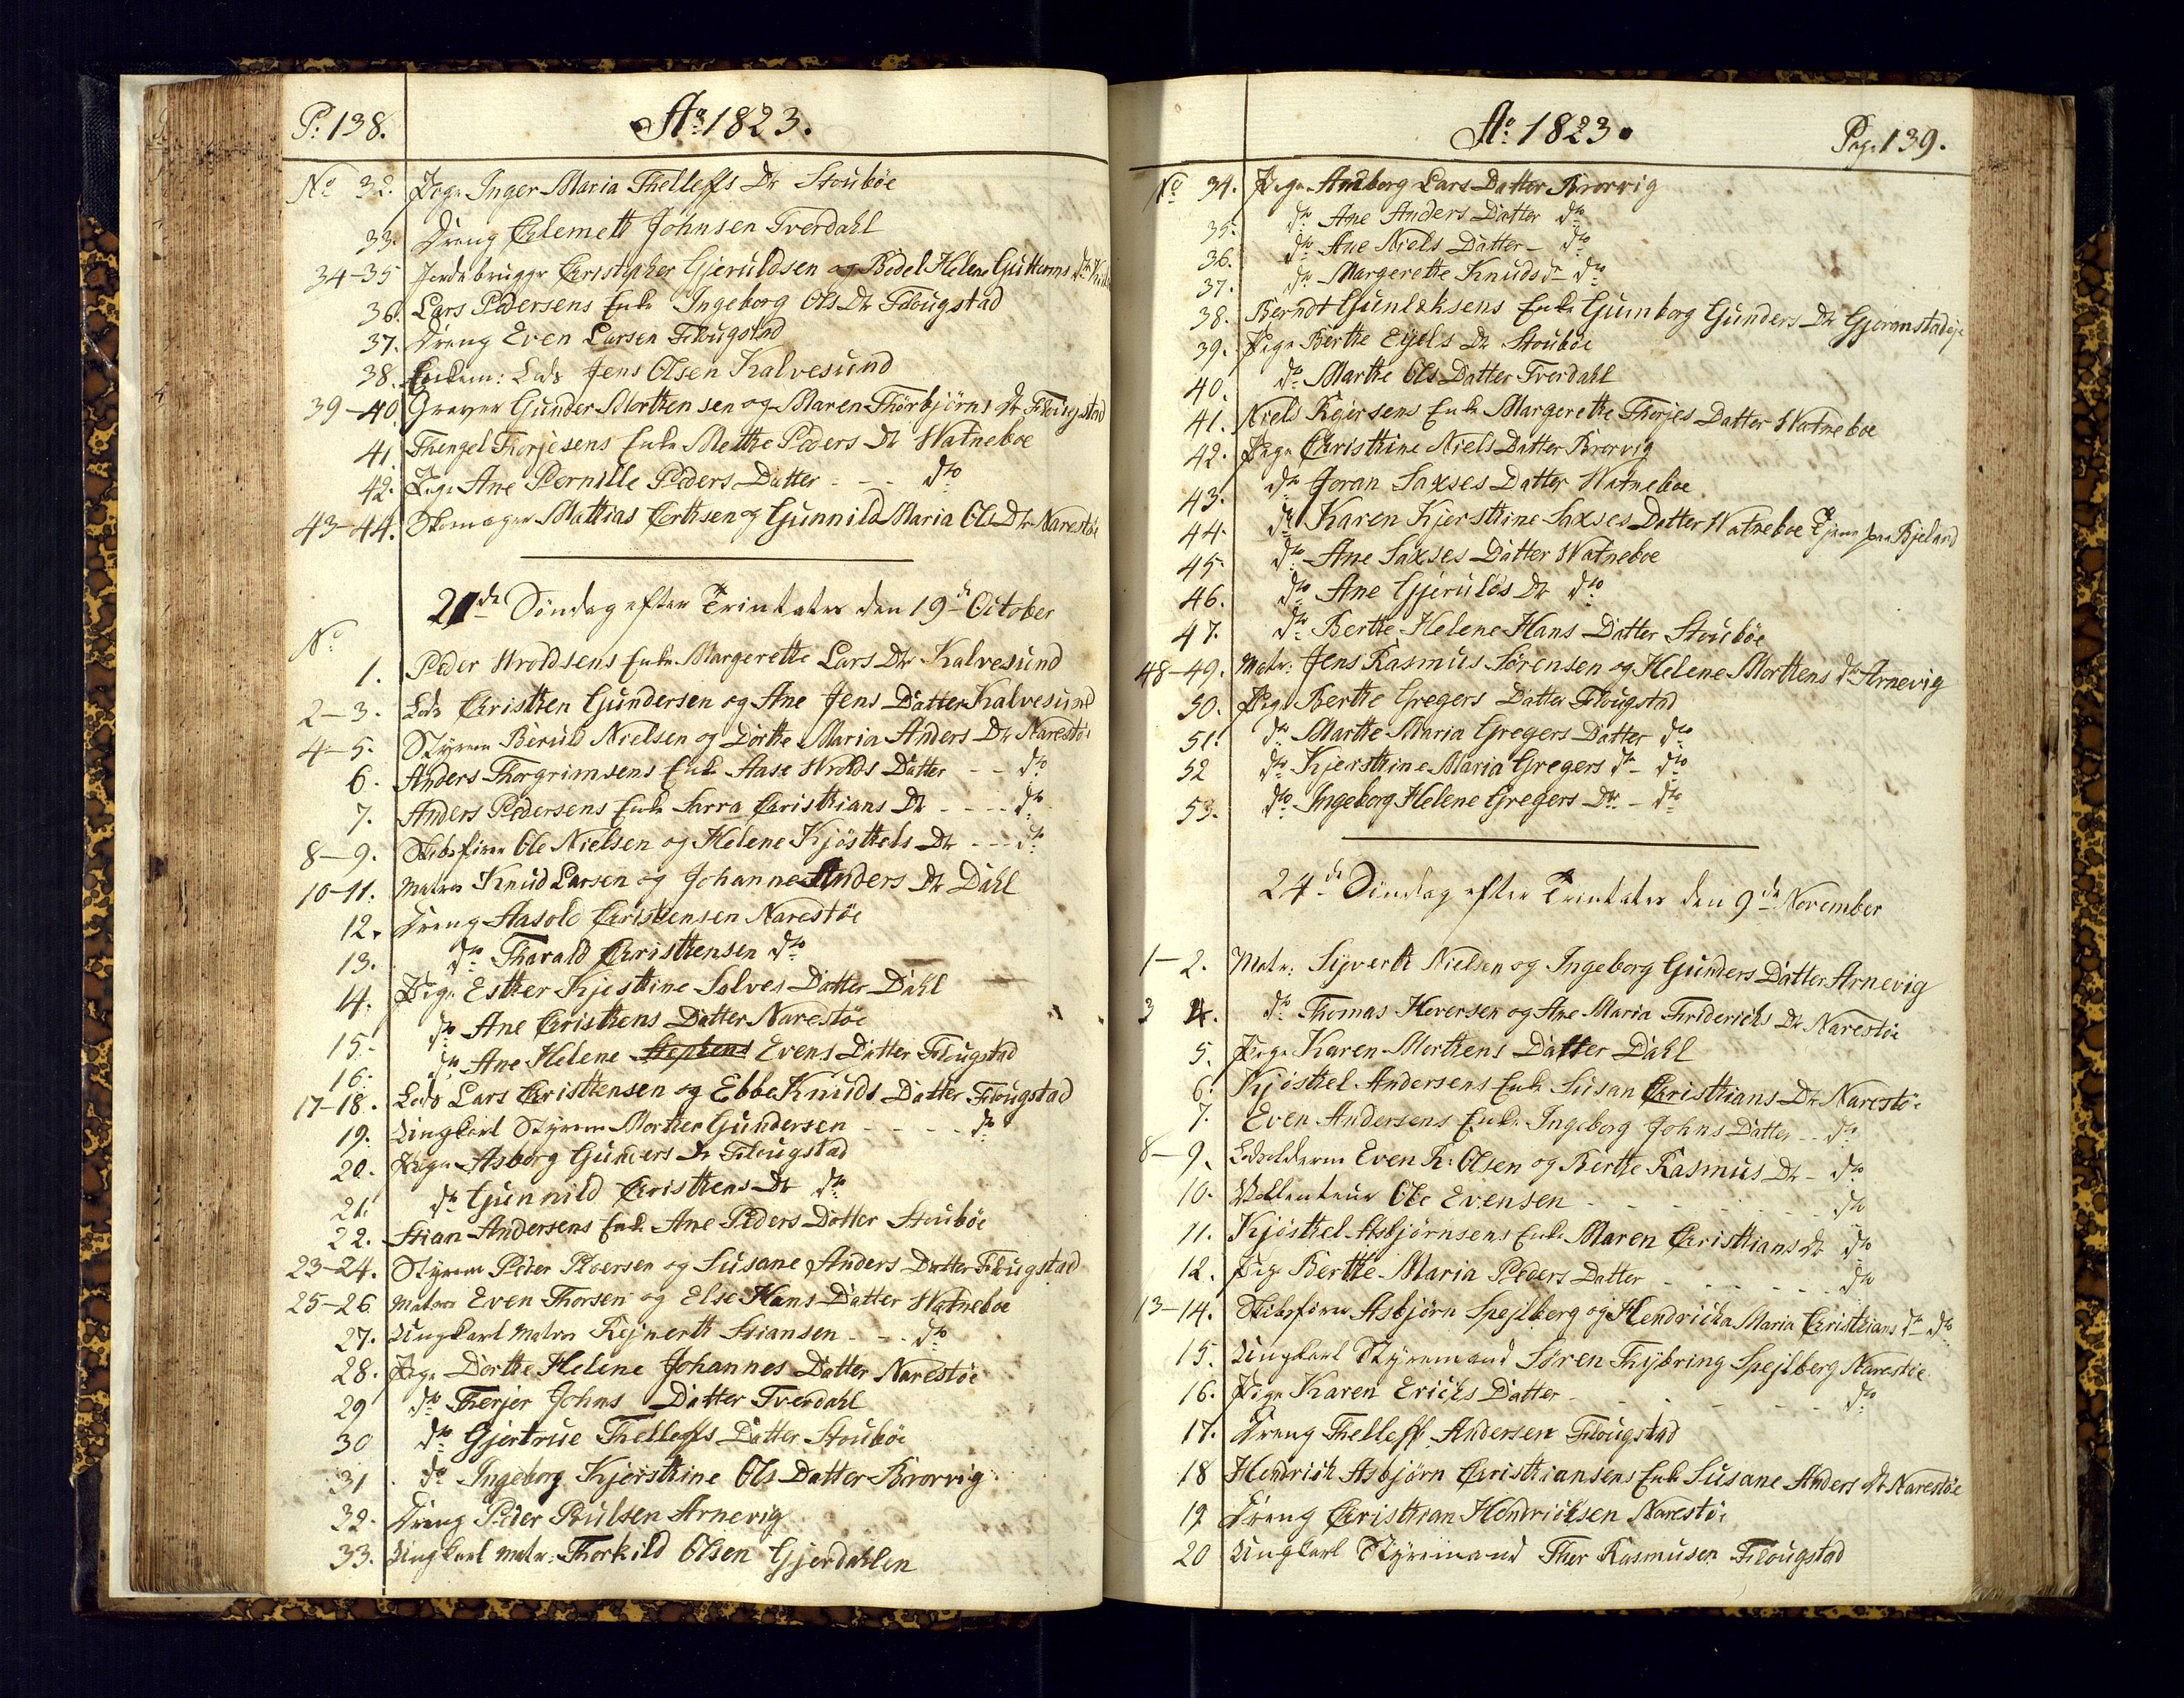 P: 138.
Ao 1823.
No 32. Pige Inger Maria Thelleffs Dr Stoubøe
33. Dreng Chlemett Johnsen Tverdahl
34-35 Jordebruger Christopher Gjeruldsen og Bodel Helene Guttorms Dr
36. Lars Pedersens Enke Ingeborg Ols Dr Flougstad
37. Dreng Even Larsen Flougstad
38. Enkem: Lods Jens Olsen Kalvesund
39-40. Graver Gunder Morthensen og Maren Thorbjörns Dr Flougstad
41 Thengel Thorjesens Enke Methe Peders Dr Watneboe
42. Pige Ane Pernille Peders Datter - - - do
43-44. Skomager Mathias Corthsen og Gunnild Maria Ols Dr Narestöe
21de Söndag efter Trinitatis den 19de October
No
1. Peder Wroldsens Enke Margerette Lars Dtr Kalvesund
2-3. Lods Christhen Gundersen og Ane Jens Datter Kalvesund
4-5. Styrm Beruld Nielsen og Dorthe Maria Anders Dr Narestöe
6. Anders Thorgrimsens Enke Aase Wrolds Datter - - do
7. Anders Pedersens Enke Sara Christhians Dr - - - - do
8-9. Skibsfører Ole Nielsen og Helene Kjösthels Dr - - - do
10-11. Matros Knud Larsen og Johanne Anders Dr Dahl
12. Dreng Aasold Christhensen Narestöe
13. do Tharald Christhensen do
14. Pige Esther Kjesthine Salves Datter Dahl
15. do Ane Christhens Datter Narestöe
16. do Ane Helene Stephens Evens Datter Flougstad
17-18. Lods Lars Christhensen og Ebbe Knuds Datter Flougstad
19. Ungkarl Styrm Morthen Gundersen - - - - do
20. Pige Asborg Gunders Dr Flougstad
21. do Gunnild Christhens Dr do
22. Stian Andersens Enke Ane Peders Datter Stoubøe
23-24. Styrm Peder Roersen og Susane Anders Datter Flougstad
25-26 Matros Even Thorsen og Else Hans Datter Watneboe
27. Ungkarl Matros Rejnerth Stiansen - - - do
28. Pige Dorthe Helene Johannes Datter Narestöe
29 do Therjer Johns Datter Tverdahl
30 do Gjertrue Thelleffs Datter Stoubøe
31 do Ingeborg Kjersthine Ols Datter Brorvig
32. Dreng Peder Poulsen Arnevig
33. Ungkarl Matr: Thorkild Olsen Gjerdahlen
Ao 1823.
Pag: 139.
No 34. Pige Anborg Lars Datter Brorvig
35. do Ane Anders Datter do
36. do Ane Niels Datter - do
37. do Margerethe Knuds dr do
38. Berndt Gunlaksens Enke Gumborg Gunders Dr
39. Pige Berthe Eyels Dr Stoubøe
40. do Marthe Ols Datter Tverdahl
41. Niels Rejersens Enke Margerethe Thorjes Datter Watneboe
42. Pige Christhine Niels Datter Brorvig
43. do Joran Saxses Datter Watneboe
44. do Karen Kjersthine Saxses Datter Watneboe Tjener paa Bjeland
45 do Ane Saxses Datter Watneboe
46. do Ane Gjerulds Dr do
47. do Berthe Helene Hans Datter Stoubøe
48-49. Matr: Jens Rasmus Sørensen og Helene Morthens dr Arnevig
50. Pige Berthe Gregers Datter Flougstad
51. do Marthe Maria Gregers Datter do
52 do Kjersthine Maria Gregers dr - do
53. do Ingeborg Helene Gregers Dr - do
24de Söndag efter Trinitatis den 9de November
1-2. Matr: Syverth Nielsen og Ingeborg Gunders Datter Arnevig
3 4. do Thomas Heversen og Ane Maria Friderichs Dr Narestöe
5. Pige Karen Morthens Datter Dahl
6. Kjösthel Andersens Enke Susan Christhians Dr Narestöe
7. Even Andersens Enke Ingeborg Johns Datter - - do
8-9. Lodsoldermd Even R: Olsen og Berthe Rasmus Dr - do
10. Ole Evensen - - - - - - do
11. Kjösthel Asbjörnsens Enke Maren Christhians dr do
12. Pige Berthe Maria Peders Datter - - - - - do
13-14. Skibsförer Asbjörn Spejlberg og Hendricha Maria Christhians dr do
15. Ungkarl Styremand Sören Thybring Spejlberg Narestöe
16. Pige Karen Erichs Datter - - - - - do
17. Dreng Thelleff Andersen Flougstad
18 Hendrich Asbjörn Christhiansens Enke Susane Anders Dr Narestöe
19 Dreng Christhian Hendrichsen Narestöe
20 Ungkarl Styremand Ther Rasmusen Flougstad